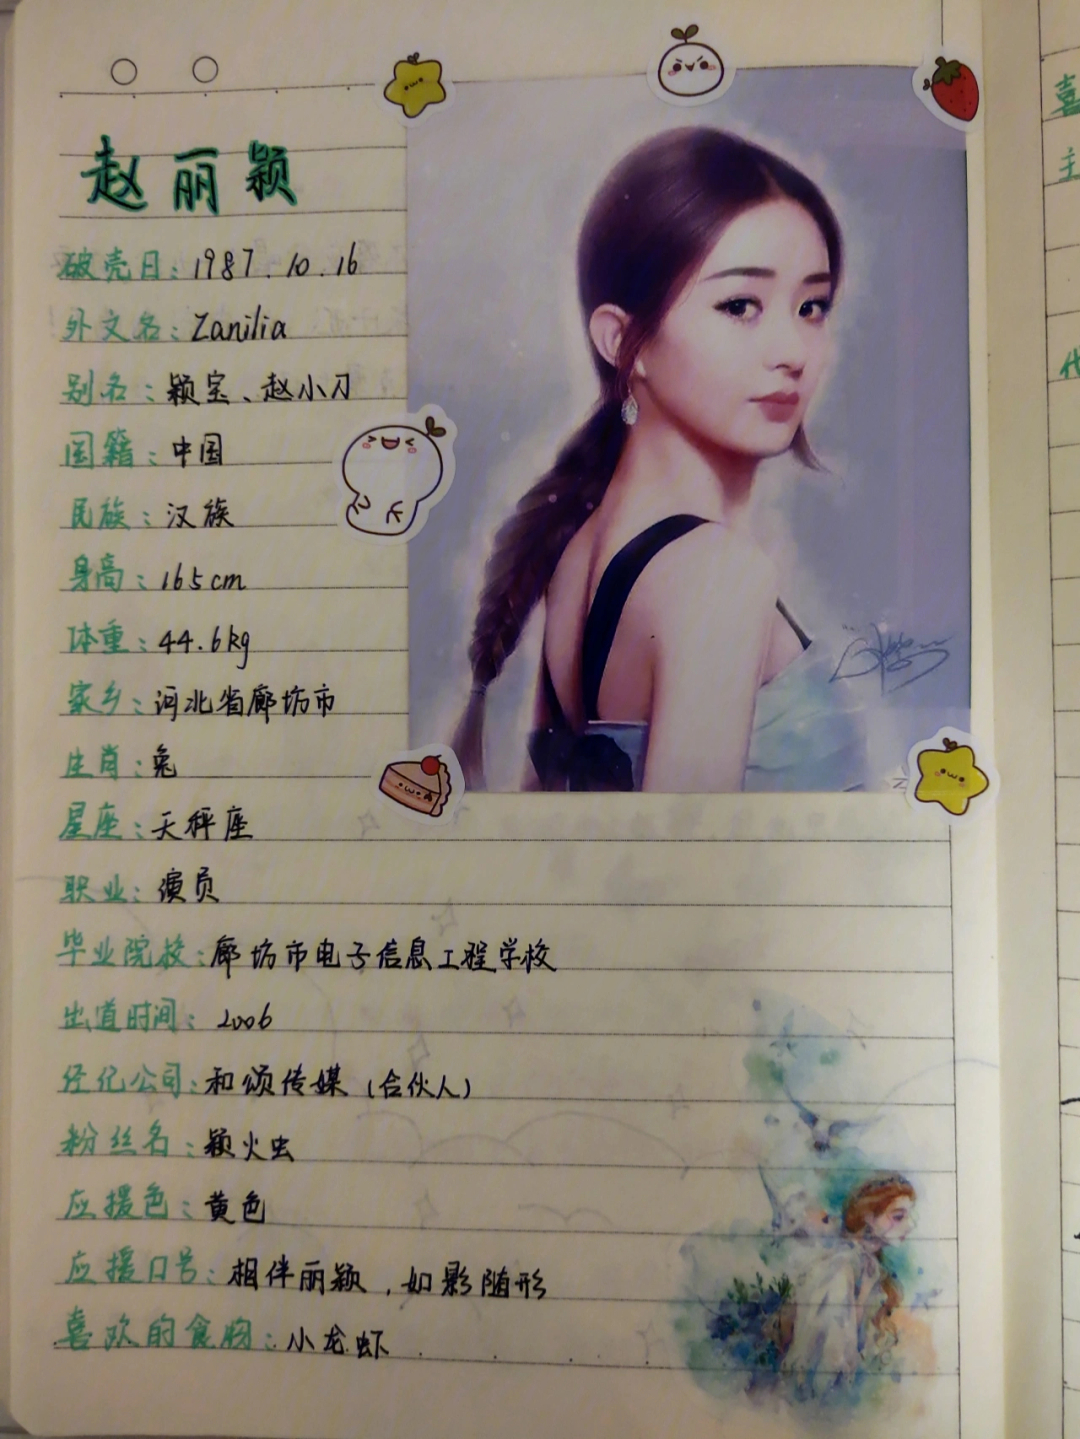 赵丽颖
破壳日：1987.10.16
外文名：Zanilia
别名：颖宝、赵小刀
国籍：中国
民族：汉族
身高：165cm
体重：44.6kg
家乡：河北省廊坊市
生肖：兔
星座：天秤座
职业：演员
毕业院校：廊坊市电子信息工程学校
出道时间：2006
经纪公司：和颂传媒（合伙人）
粉丝名：颖火虫
应援色：黄色
应援口号：相伴丽颖，如影随形
喜欢的食物：小龙虾
喜
主
代